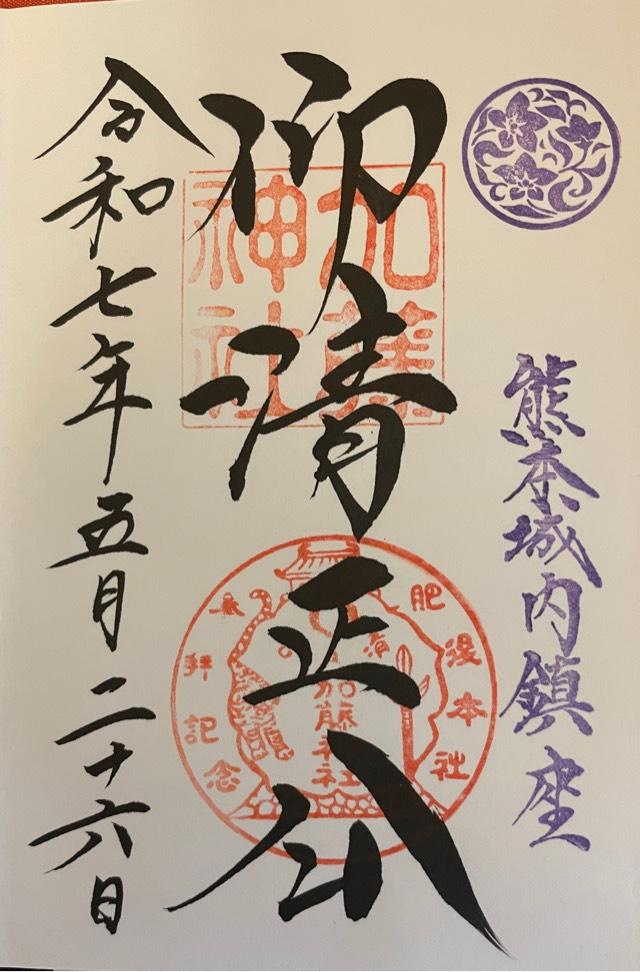 熊本城内鎮座
仰清正公
加藤
神社
肥後本社
参拝記念
加藤神社
令和七年五月二十六日